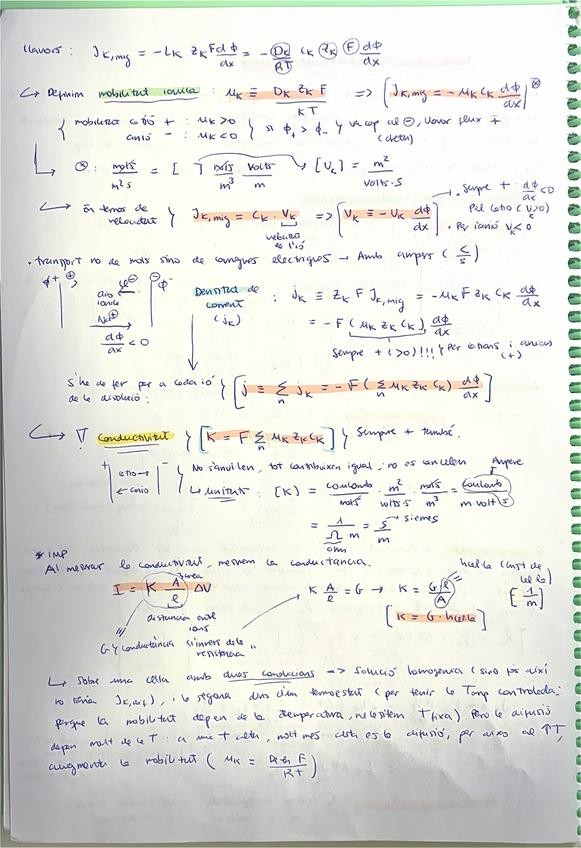 llavors : J_K,mig = - L_K z_K F dϕ/dx = - D_K/RT c_K z_K F dϕ/dx
↳ Definim mobilitat iònica : μ_K ≡ D_K z_K F / KT => [J_K,mig = - μ_K c_K dϕ/dx] ⊗
{ mobilitat catió + : μ_K > 0
anió - : μ_K < 0 } si ϕ+ > ϕ- } va cap al ⊖, llavor flux +
(dreta)
↳ ⊗ : mols/m²s = [ ] mols/m³ volts/m → [U_K] = m²/volts·s
↳ En termes de velocitat } J_K,mig = c_K · V_K => [V_K ≡ - U_K dϕ/dx]
velocitat de l'ió
· sempre + dϕ/dx < 0
pel catió (V > 0)
· Per l'anió V_K < 0
· transport no de mols sino de càrregues elèctriques → Amb ampers (C/s)
ϕ+ ⊕ ⊖ ϕ-
dϕ/dx < 0
Densitat de corrent (j_K) : j_K ≡ z_K F J_K,mig = - μ_K F z_K c_K dϕ/dx
= - F (μ_K z_K c_K) dϕ/dx
sempre + (>0) !!! } per cations i anions (+)
S'ha de fer per a cada ió de la dissolució : } [j = Σ_n j_K = - F (Σ_n μ_K z_K c_K) dϕ/dx]
↳ ∇ conductivitat } [K = F Σ_n μ_K z_K c_K] } sempre + també.
+ catió → -
← anió
} No s'anul·len, tot contribuixen igual, no es cancelen
↳ unitats : [K] = coulombs/mols · m²/volts·s · mols/m³ = coulomb/m·volt·s
Ampere
= 1/Ω m = S/m → siemens
ohm
* IMP
Al mesurar la conductivitat, mesurem la conductància.
I = K A/l ΔV
àrea
distància entre
G } conductància "invers de la resistència"
K A/l = G → K = G l/A
[K = G · kcel·la]
[1/m]
↳ Sobre una cel·la amb dues condicions => solució homogènia (sino pas així
no hauria J_K,dif), i la segona dins d'un termostat (per tenir la Temp controlada:
perquè la mobilitat depen de la temperatura, necessitem T fixa) Però la difusió
depen molt de la T : a una T alta, molt mes alta es la difusió, per això al ↑T,
augmenta la mobilitat ( μ_K = D_K z_K F / RT )